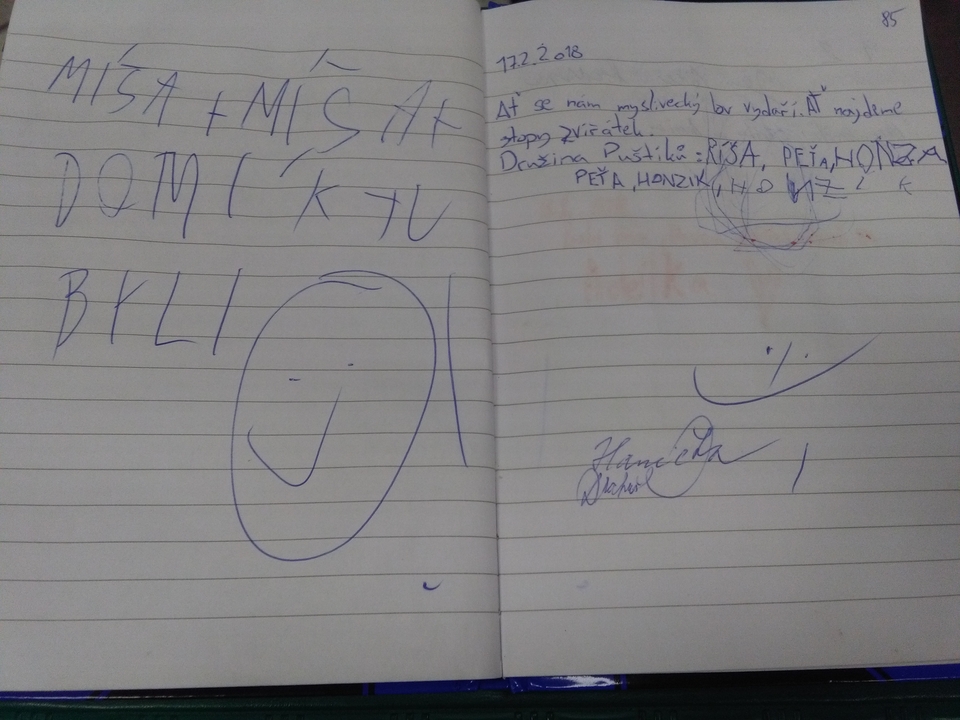 MÍŠA + MÍŠA +
DOMÍK TU
BYLI
85
17.2.2018
Ať se nám myslivecký lov vydaří. Ať najdeme
stopy zvířátek.
Družina Puštíků: RÍŠA, PEŤA, HONZA
PEŤA, HONZIK, HONZÍK